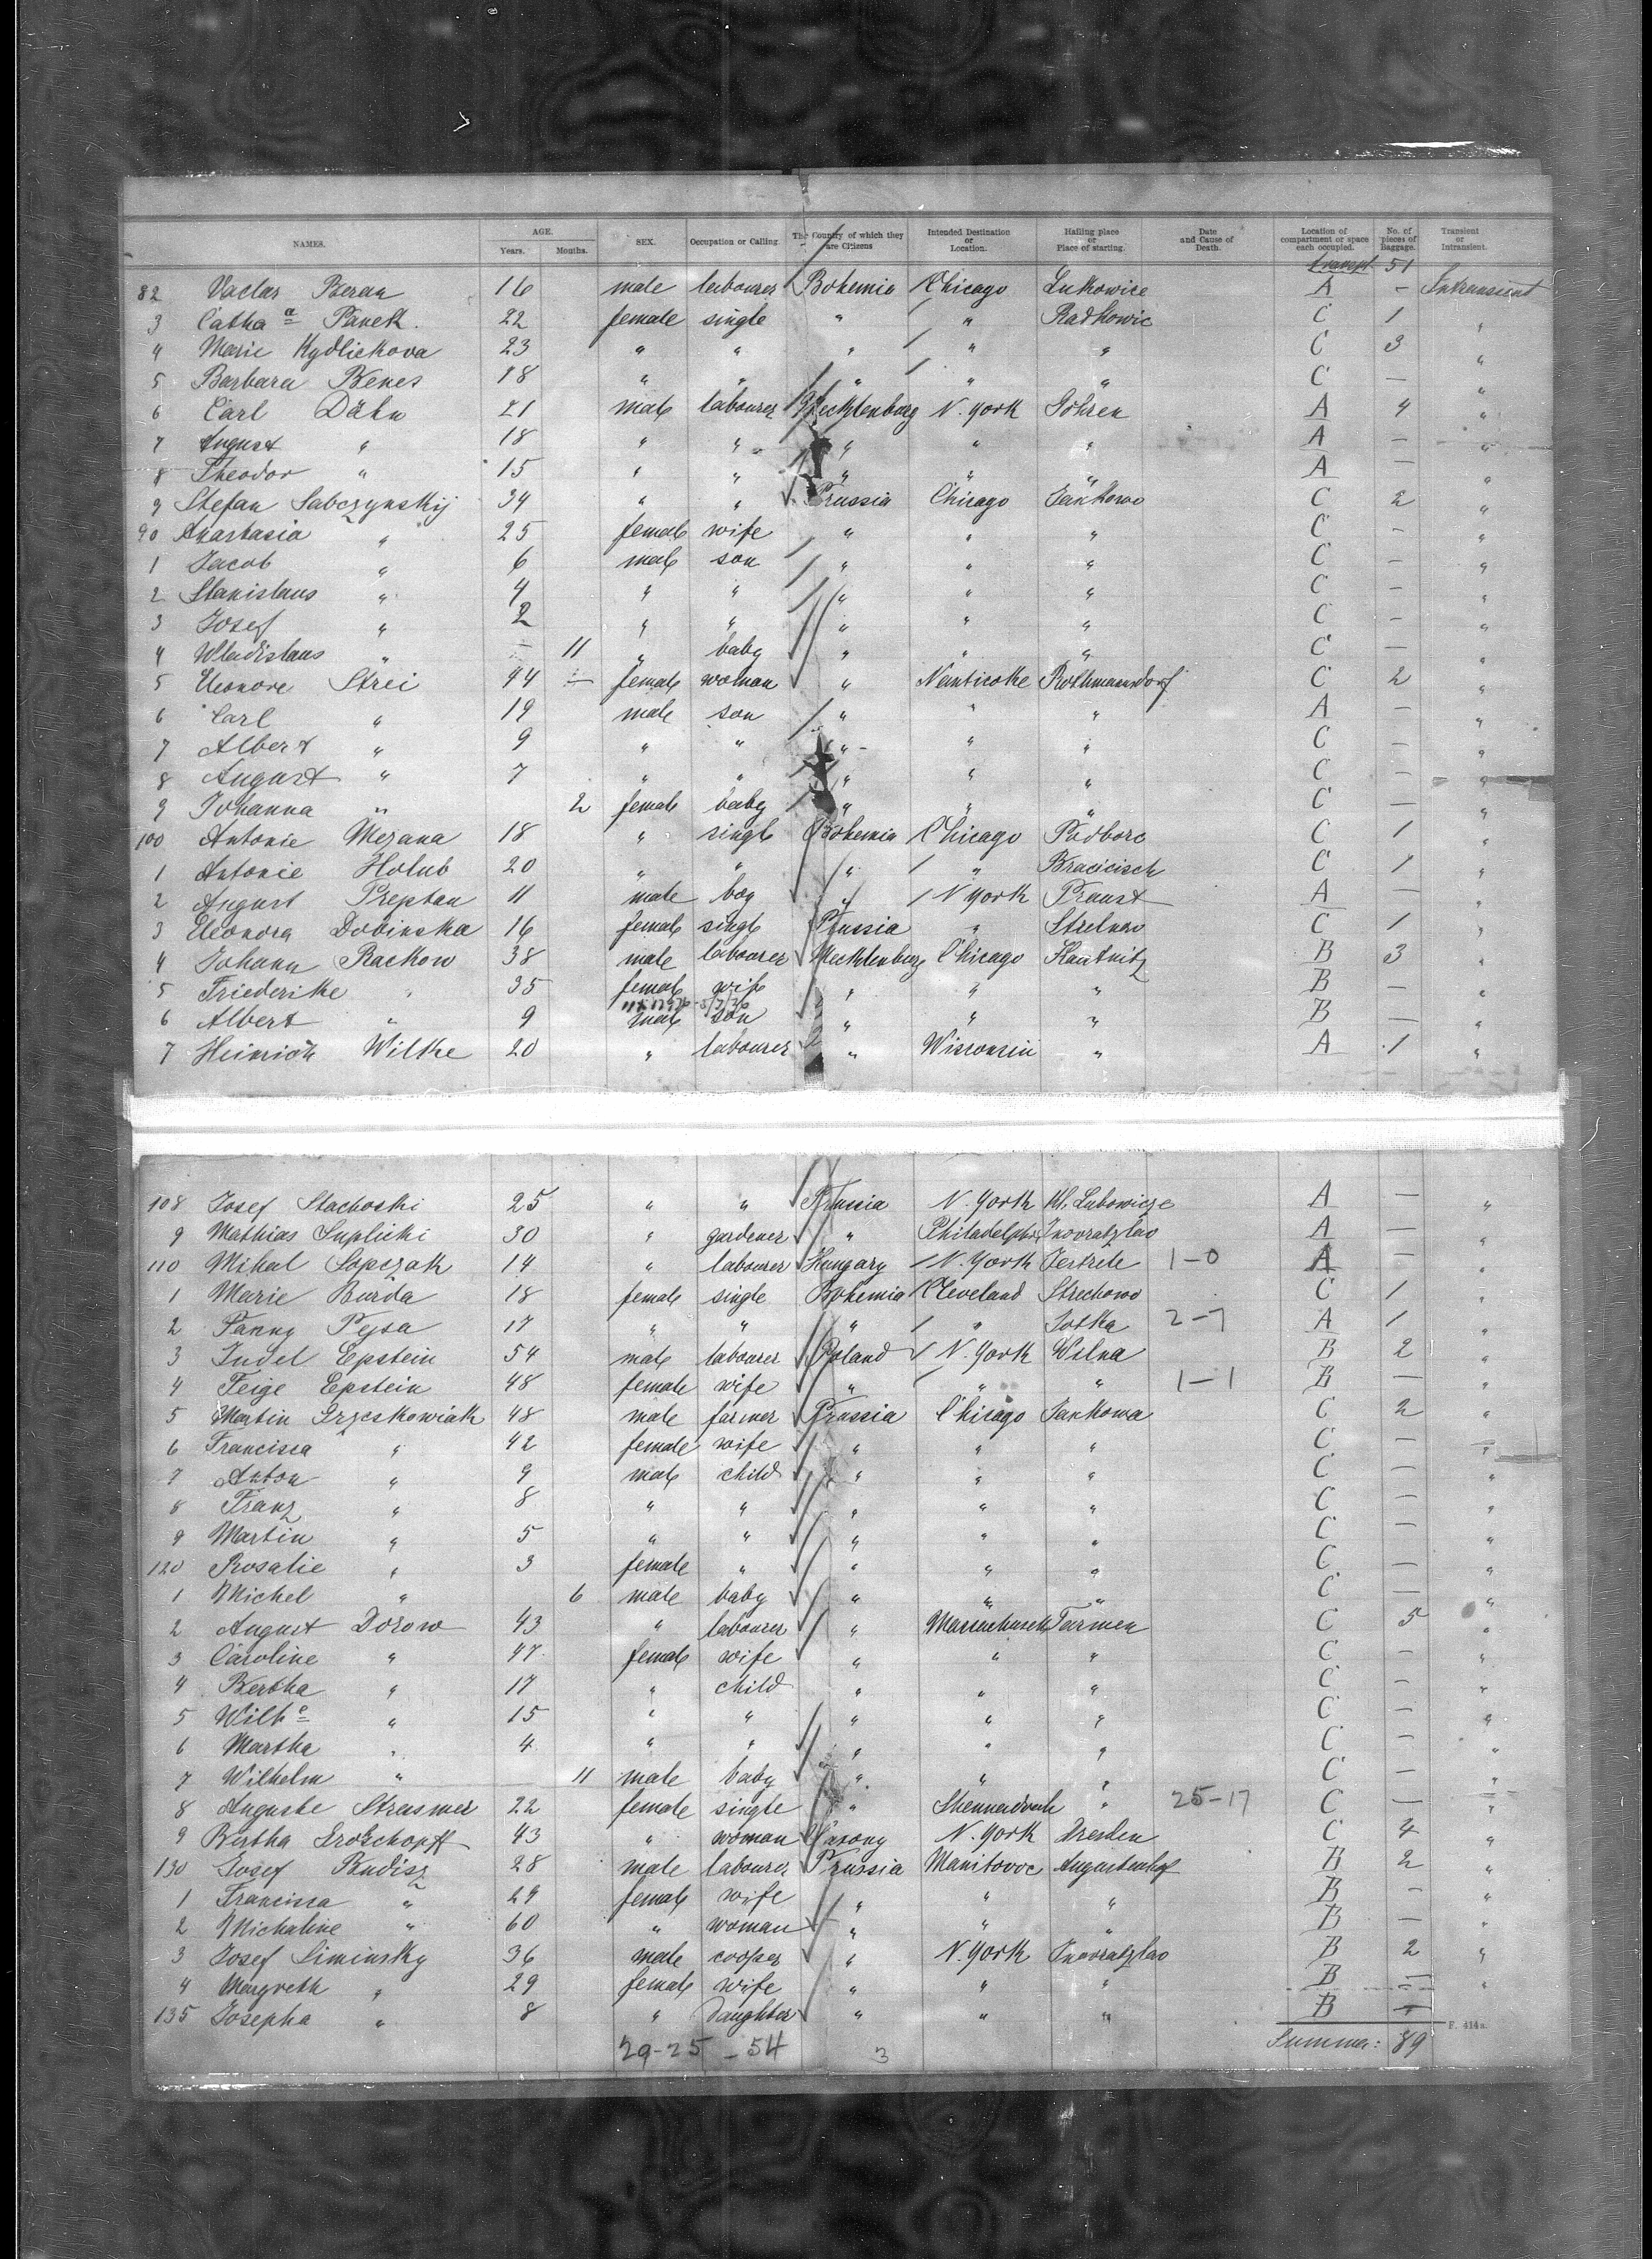 NAMES. AGE. Years. Months. SEX. Occupation or Calling. The Country of which they are Citizens Intended Destination or Location. Hailing place or Place of starting. Date and Cause of Death. Location of compartment or space each occupied. No. of pieces of Baggage. Transient or Intransient.
transpt. 51
82 Vaclav Beran 16 male labourer Bohemia Chicago Lukowice A - Intransient
3 Catha Panek. 22 female single " " Radkowic C 1 "
4 Marie Kydlickova 23 " " " " " C 3 "
5 Barbara Benes 18 " " " " " C - "
6 Carl Dähn 21 male labourer Mecklenburg N. York Göhren A 4 "
7 August " 18 " " " " " A - "
8 Theodor " 15 " " " " " A - "
9 Stefan Sabczynskij 34 " " Prussia Chicago Jankowo C 2 "
90 Anastasia " 25 female wife " " " C - "
1 Jacob " 6 male son " " " C - "
2 Stanislaus " 4 " " " " " C - "
3 Josef " 2 " " " " " C - "
4 Wladislaus " - 11 " baby " " " C - "
5 Eleonore Strei 44 - female woman " Nanticoke Rothmannsdorf C 2 "
6 Carl " 19 male son " " " A - "
7 Albert " 9 " " " " " C - "
8 August " 7 " " " " " C - "
9 Johanna " 2 female baby " " " C - "
100 Antonie Mezana 18 " single Bohemia Chicago Podborc C 1 "
1 Antonie Holub 20 " " " " C 1 "
2 August Preptau 11 male boy " N York Praust A - "
3 Eleonora Dobinska 16 female single Prussia " Strelnau C 1 "
4 Johann Rackow 38 male labourer Mecklenburg Chicago B 3 "
5 Friederike " 35 female wife " " " B - "
6 Albert " 9 male son " " " B - "
7 Heinrich Wilke 20 " labourer " Wisconsin " A 1 "
108 Josef Stachoski 25 " " Prussia N. York Kl. Lubowicze A - "
9 Mathias Suplicki 30 " gardener " Philadelphia Inovratzlao A - "
110 Mihal Sopczak 14 " labourer Hungary N. York 1-0 A - "
1 Marie Burda 18 female single Bohemia Cleveland Strechowo C 1 "
2 Fanny Pejsa 17 " " " " Sotka 2-7 A 1 "
3 Judel Epstein 54 male labourer Poland N. York Wilna B 2 "
4 Feige Epstein 48 female wife " " " 1-1 B - "
5 Martin Grzeskowiak 48 male farmer Prussia Chicago Jankowa C 2 "
6 Francisca " 42 female wife " " " C - "
7 Anton " 9 male child " " " C - "
8 Franz " 8 " " " " " C - "
9 Martin " 5 " " " " " C - "
120 Rosalie " 3 female " " " " C - "
1 Michel " 6 male baby " " " C - "
2 August Dorow 43 " labourer " Massachusets Tarmen C 5 "
3 Caroline " 47 female wife " " " C - "
4 Bertha " 17 " child " " " C - "
5 Wilhe " 15 " " " " " C - "
6 Martha " 4 " " " " " C - "
7 Wilhelm " 11 male baby " " " C - "
8 Auguste Strasmer 22 female single " Shennadoah " 25-17 C - "
9 Bertha Grotzchopff 43 " woman Saxony N. York Dresden C 4 "
130 Josef Rudisz 28 male labourer Prussia Manitovoc Augustenhof B 2 "
1 Francisca " 29 female wife " " " B - "
2 Michaline " 60 " woman " " " B - "
3 Josef Siminsky 36 male cooper " N. York Inovratzlao B 2 "
4 Margreth " 29 female wife " " " B - "
135 Josepha " 8 " Daughter " " " B -
29-25 - 54 3 Summa: 89
F. 414a.